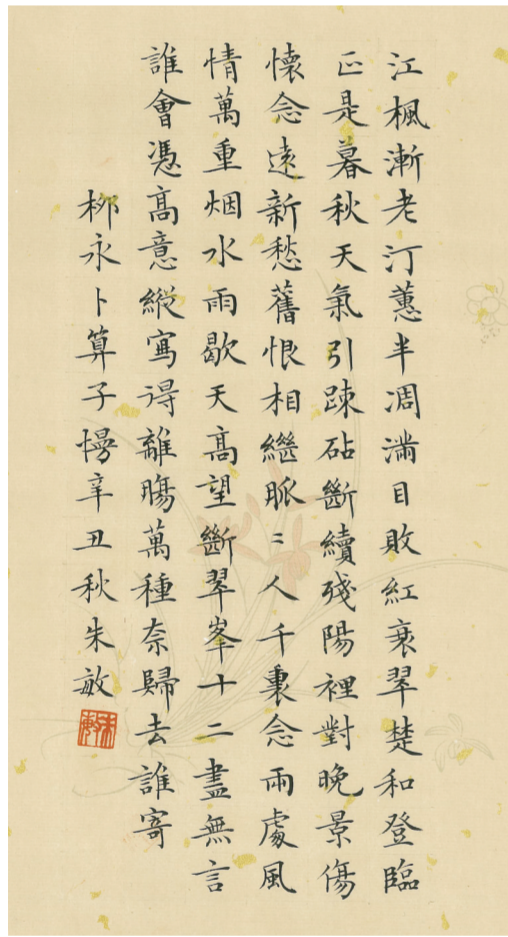 江楓漸老汀蕙半凋滿目敗紅衰翠楚和登臨
正是暮秋天氣引疎砧斷續殘陽裡對晚景傷
懷念遠新愁舊恨相繼脈〻人千裏念兩處風
情萬重烟水雨歇天高望斷翠峯十二盡無言
誰會憑高意縱寫得離腸萬種奈歸去誰寄
柳永卜算子慢辛丑秋朱敏
朱敏